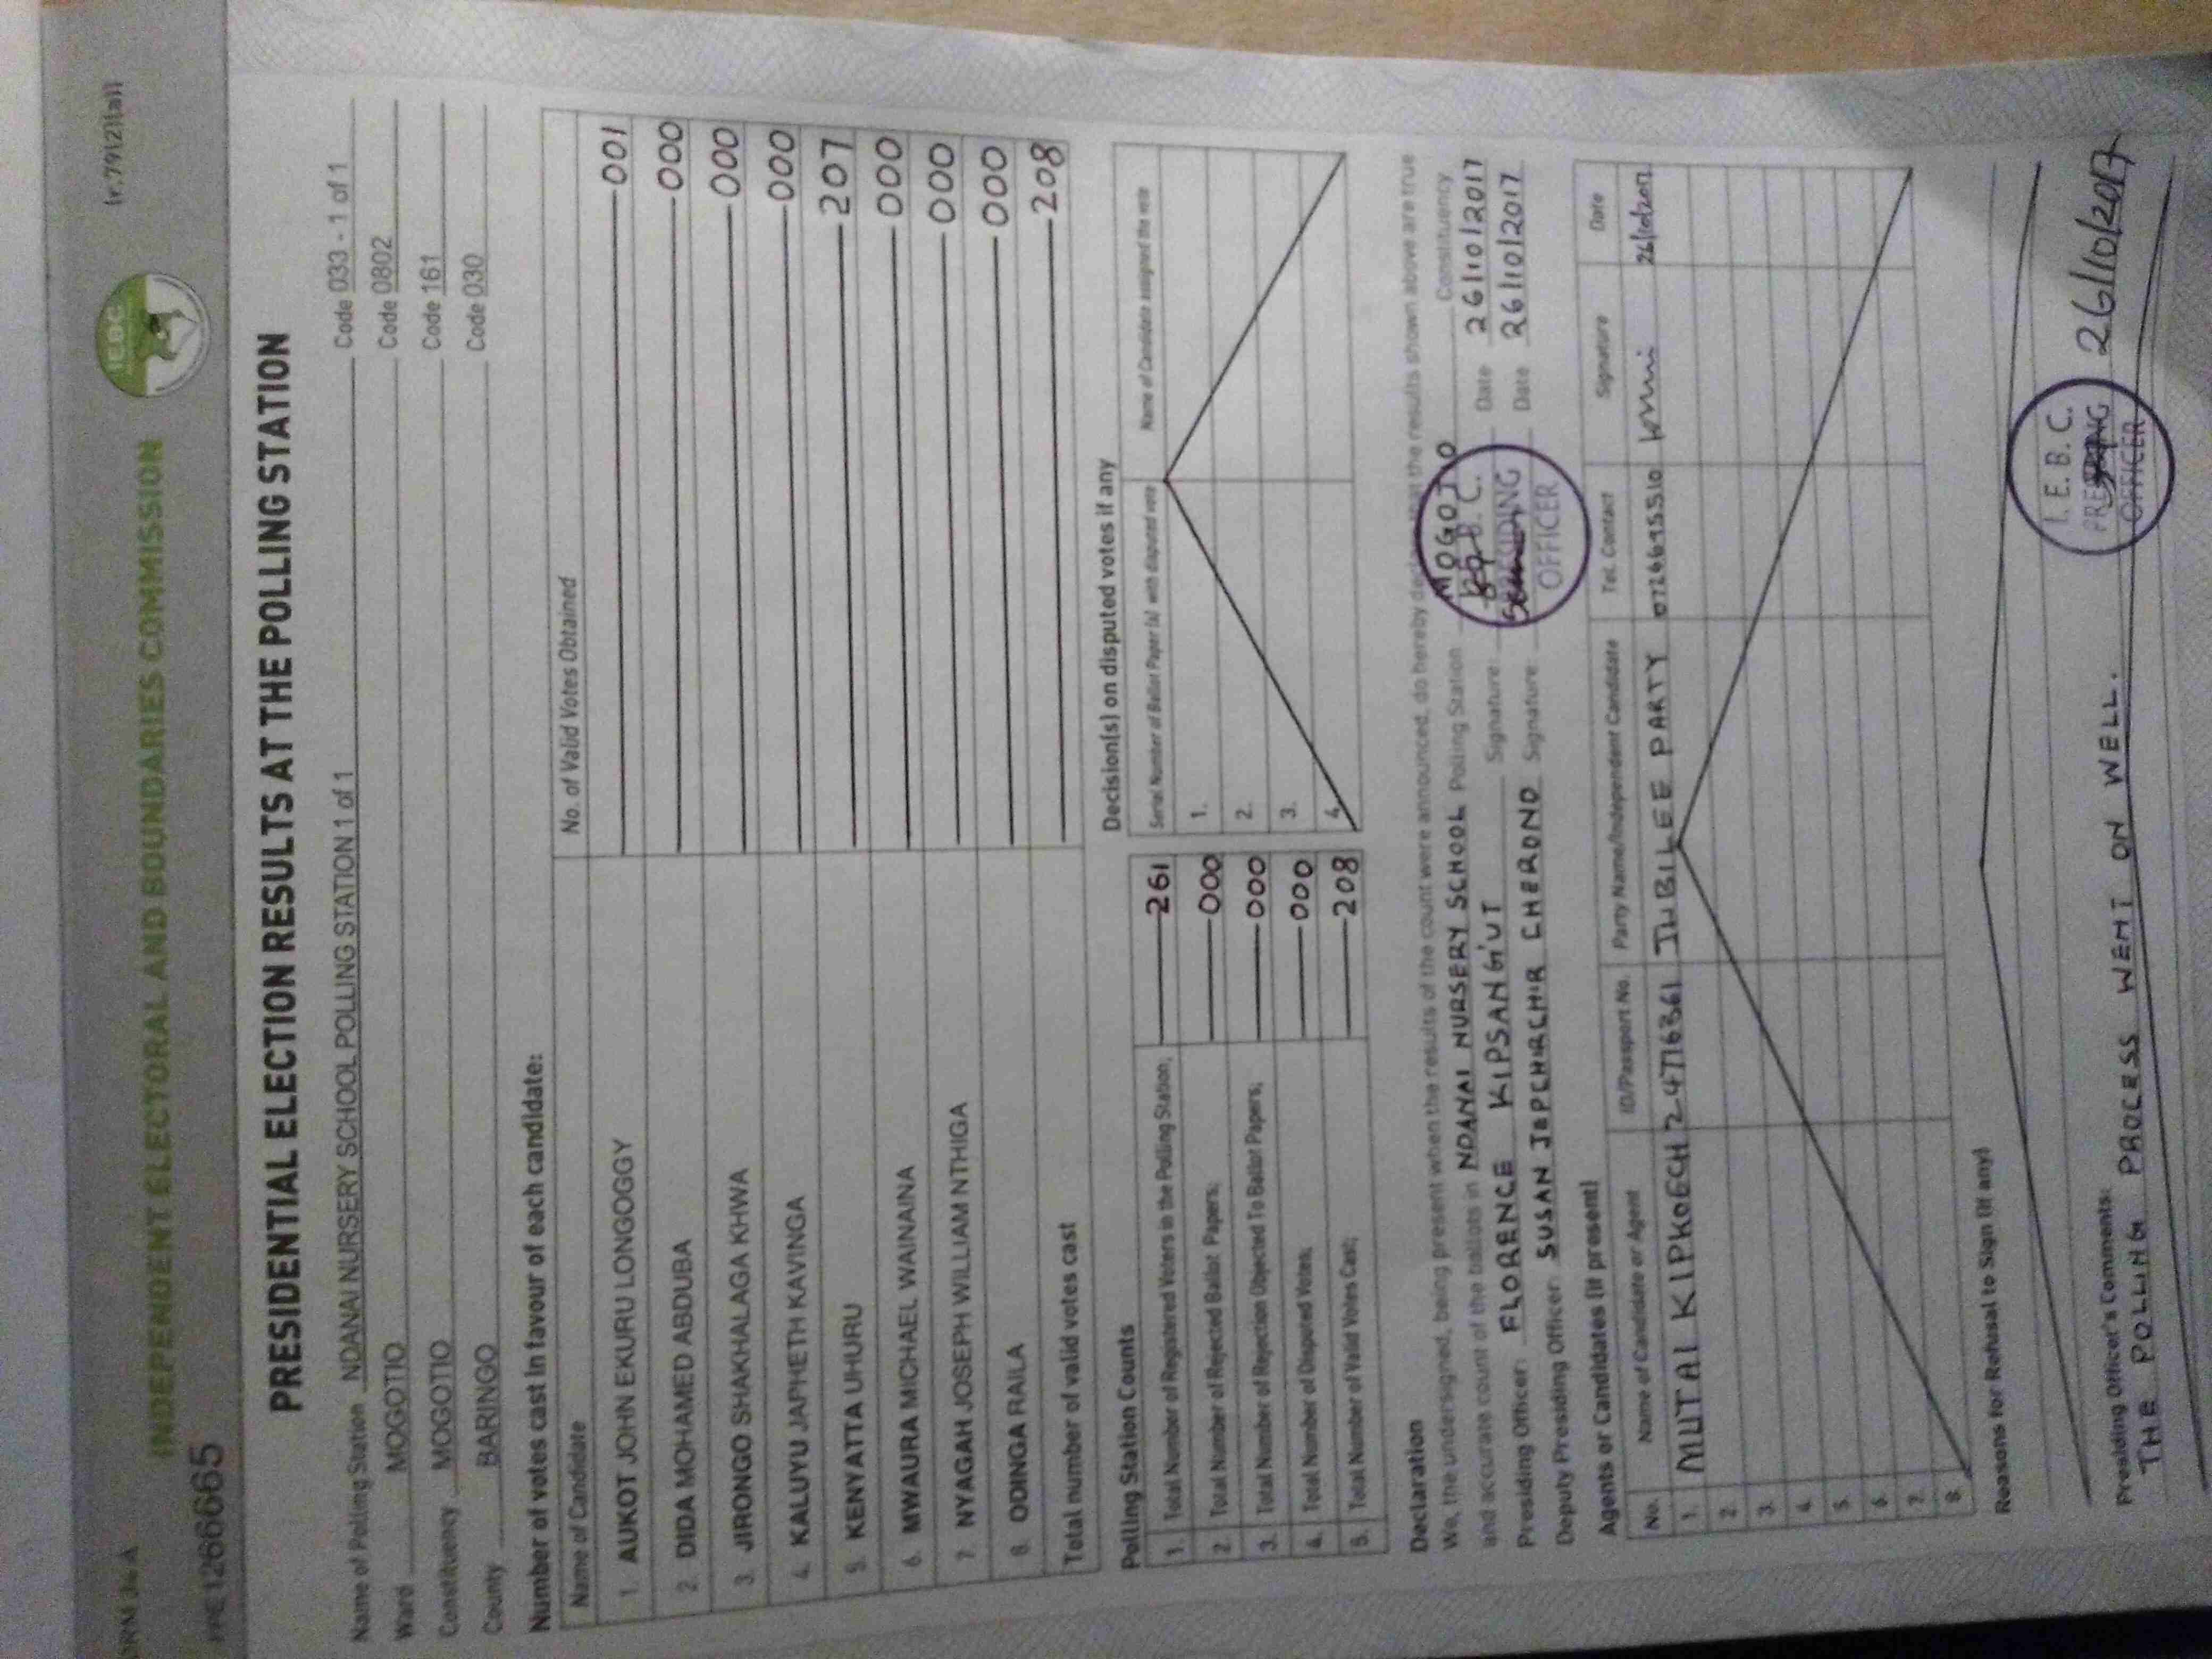 (r.79(2)(a))
INDEPENDENT ELECTORAL AND BOUNDARIES COMMISSION
IEBC
1266665
PRESIDENTIAL ELECTION RESULTS AT THE POLLING STATION
Name of Polling Station NDANAI NURSERY SCHOOL POLLING STATION 1 of 1 Code 033 - 1 of 1
Ward MOGOTIO Code 0802
Constituency MOGOTIO Code 161
County BARINGO Code 030
Number of votes cast in favour of each candidate:
Name of Candidate No. of Valid Votes Obtained
1. AUKOT JOHN EKURU LONGOGGY 001
2. DIDA MOHAMED ABDUBA 000
3. JIRONGO SHAKHALAGA KHWA 000
4. KALUYU JAPHETH KAVINGA 000
5. KENYATTA UHURU 207
6. MWAURA MICHAEL WAINAINA 000
7. NYAGAH JOSEPH WILLIAM NTHIGA 000
8. ODINGA RAILA 000
Total number of valid votes cast 208
Polling Station Counts
1. Total Number of Registered Voters in the Polling Station; 261
2. Total Number of Rejected Ballot Papers; 000
3. Total Number of Rejection Objected To Ballot Papers; 000
4. Total Number of Disputed Votes; 000
5. Total Number of Valid Votes Cast; 208
Decision(s) on disputed votes if any
Serial Number of Ballot Paper (s) with disputed vote Name of Candidate assigned the vote
1.
2.
3.
4.
Declaration
We, the undersigned, being present when the results of the count were announced, do hereby declare that the results shown above are true
and accurate count of the ballots in NDANAI NURSERY SCHOOL Polling Station MOGOTIO Constituency
Presiding Officer: FLORENCE KIPSANG'UT Signature: Date 26/10/2017
Deputy Presiding Officer: SUSAN JEPCHIRCHIR CHERONO Signature: Date 26/10/2017
I. E. B. C.
PRESIDING
OFFICER
Agents or Candidates (if present)
No. Name of Candidate or Agent ID/Passport No. Party Name/Independent Candidate Tel. Contact Signature Date
1. MUTAI KIPKOECH JUBILEE PARTY 26/10/2017
2.
3.
4.
5.
6.
7.
8.
Reasons for Refusal to Sign (if any)
Presiding Officer's Comments:
THE POLLING PROCESS WENT ON WELL.
I. E. B. C.
PRESIDING
OFFICER
26/10/2017